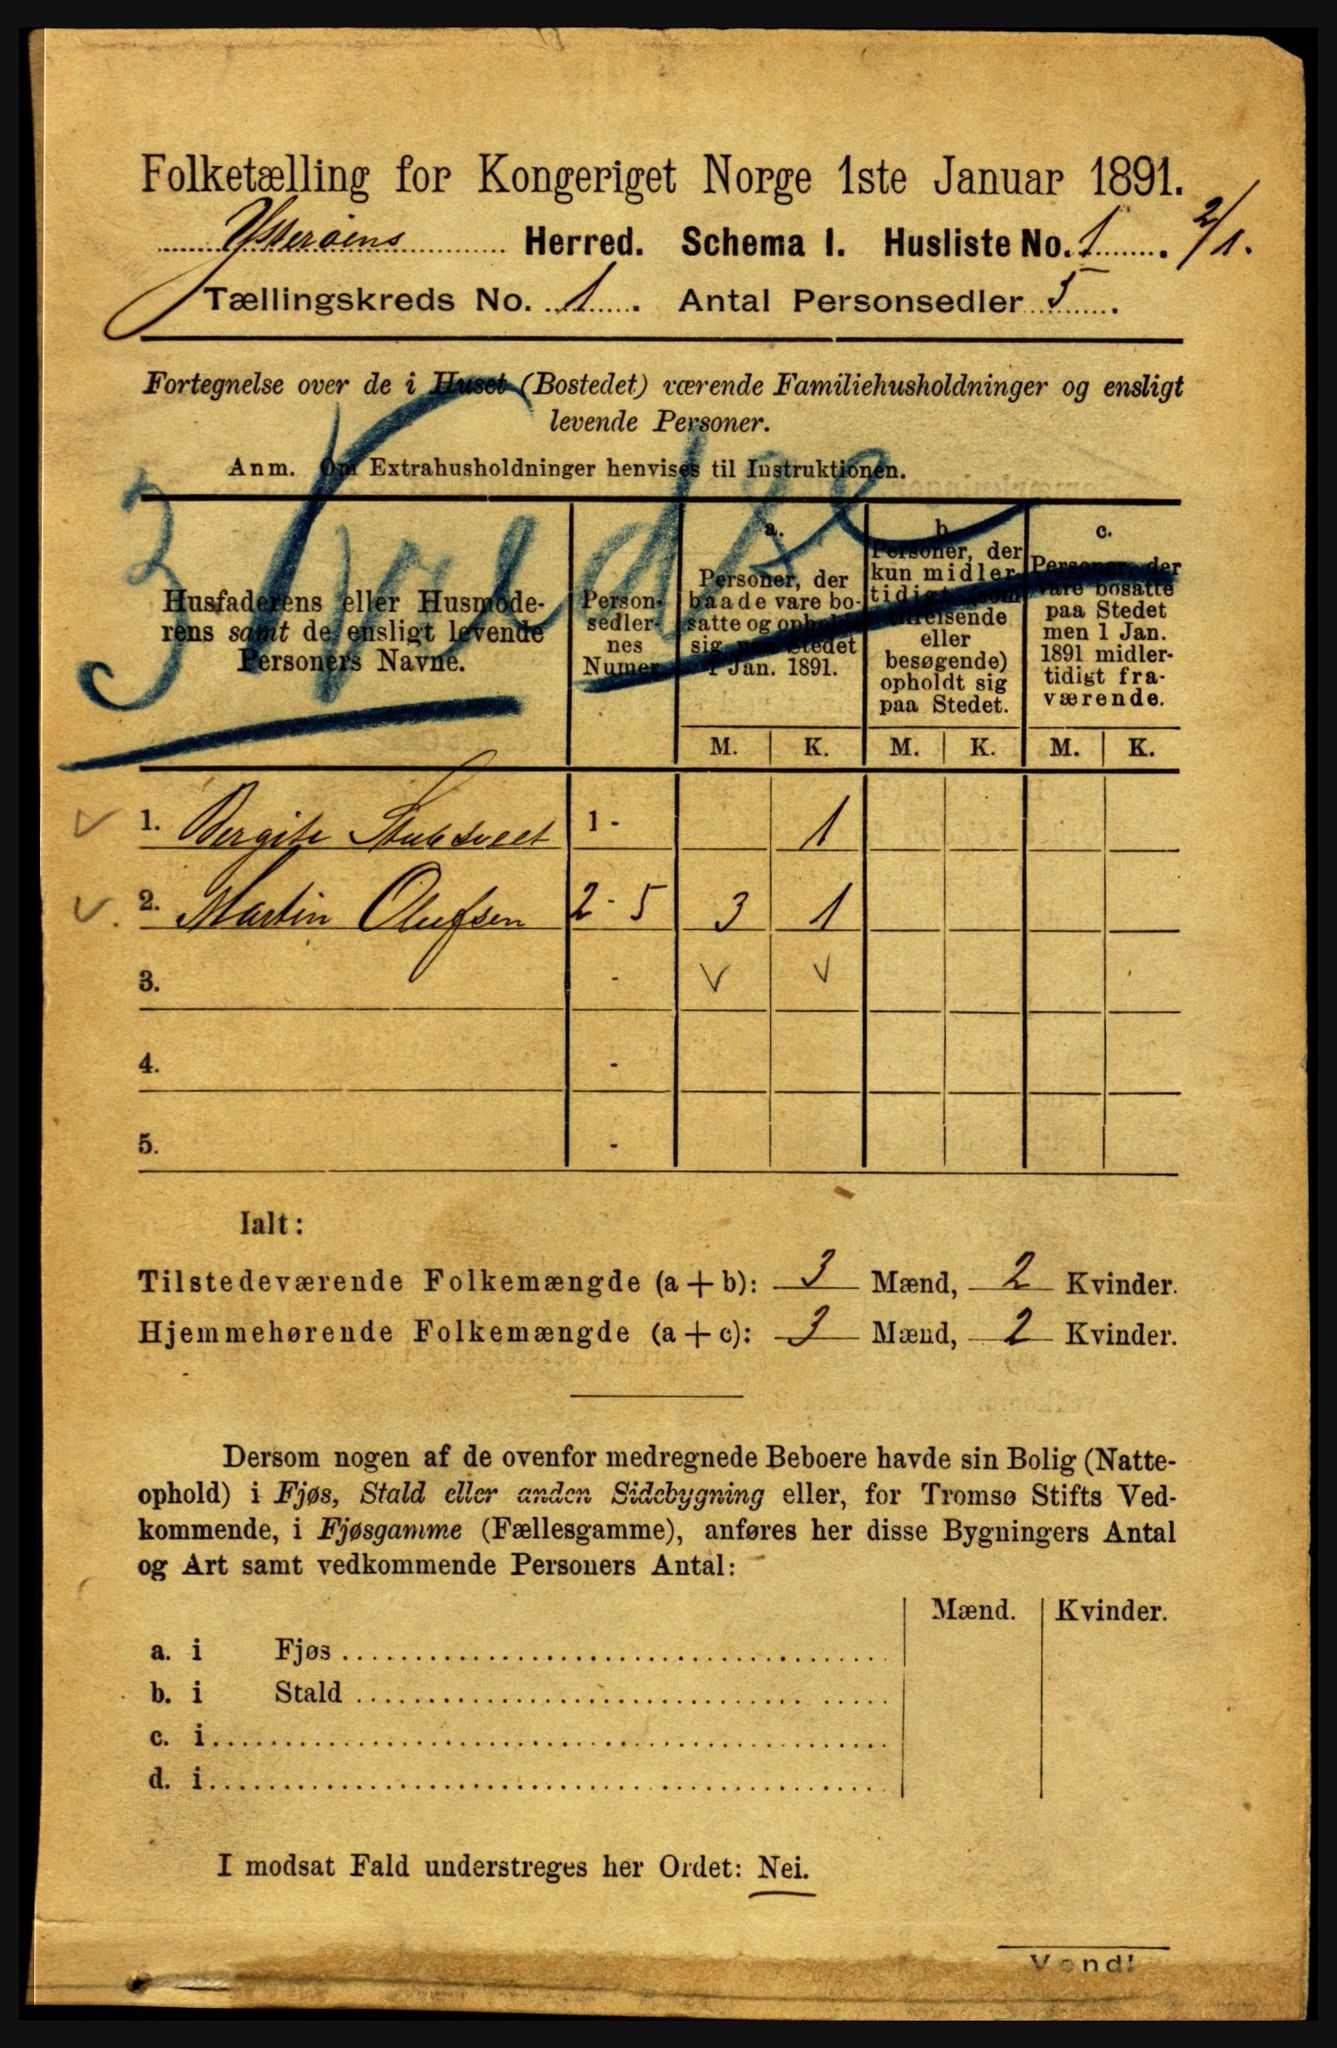 Folketælling for Kongeriget Norge 1ste Januar 1891.
Ytterøens Herred. Schema I. Husliste No. 1. 2/1.
Tællingskreds No. 1. Antal Personsedler 5.
Fortegnelse over de i Huset (Bostedet) værende Familiehusholdninger og ensligt
levende Personer.
Anm. Om Extrahusholdninger henvises til Instruktionen.
3 Kredse
Husfaderens eller Husmode-
rens samt de ensligt levende
Personers Navne.
Person-
sedler-
nes
Numer.
a.
Personer, der
baade vare bo-
satte og opholdt
sig paa Stedet
1 Jan. 1891.
b.
Personer, der
kun midler-
tidigt (som
tilreisende
eller
besøgende)
opholdt sig
paa Stedet.
c.
Personer, der
vare bosatte
paa Stedet
men 1 Jan.
1891 midler-
tidigt fra-
værende.
M. K. M. K. M. K.
1. Bergite 1 - 1
2. Martin Olufsen 2 - 5 3 1
3. -
4. -
5. -
Ialt:
Tilstedeværende Folkemængde (a + b): 3 Mænd, 2 Kvinder.
Hjemmehørende Folkemængde (a + c): 3 Mænd, 2 Kvinder.
Dersom nogen af de ovenfor medregnede Beboere havde sin Bolig (Natte-
ophold) i Fjøs, Stald eller anden Sidebygning eller, for Tromsø Stifts Ved-
kommende, i Fjøsgamme (Fællesgamme), anføres her disse Bygningers Antal
og Art samt vedkommende Personers Antal:
Mænd. Kvinder.
a. i Fjøs
b. i Stald
c. i
d. i
I modsat Fald understreges her Ordet: Nei.
Vend!